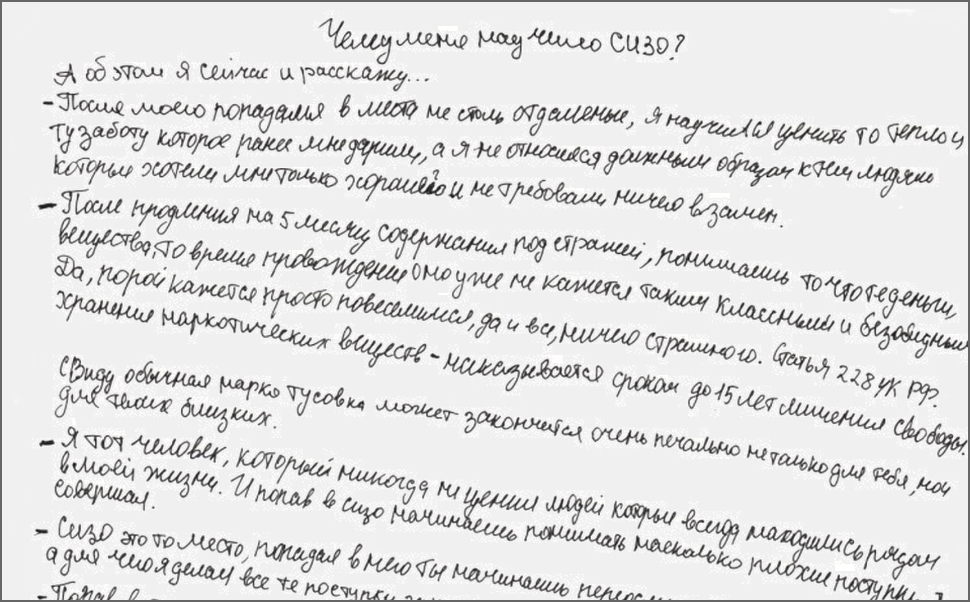 Чему меня научило СИЗО?
А об этом я сейчас и расскажу...
- После моего попадания в места не столь отдаленые, я научился ценить то тепло и
ту заботу которое ранее мне дарили, а я не относился должным образом к тем людям
которые хотели мне только хорошего и не требовали ничего взамен.
- После продления на 5 месяцу содержания под стражей, понимаешь то что те деньги,
вещества, то время провождение оно уже не кажется таким классным и безобидным
Да, порой кажется просто повеселимся, да и все, ничего страшного. Статья 228 УК РФ.
хранение наркотических веществ - наказывается сроком до 15 лет лишения свободы.
Свиду обычная нарко тусовка может закончится очень печально не только для тебя, но и
для твоих близких.
- Я тот человек, который никогда не ценил людей которые всегда находились рядом
в моей жизни. И попав в сизо начинаешь понимать насколько плохие поступки я
совершал.
- Сизо это то место, попадая в него ты начинаешь
а для чего я делал все те поступки
- Попав в